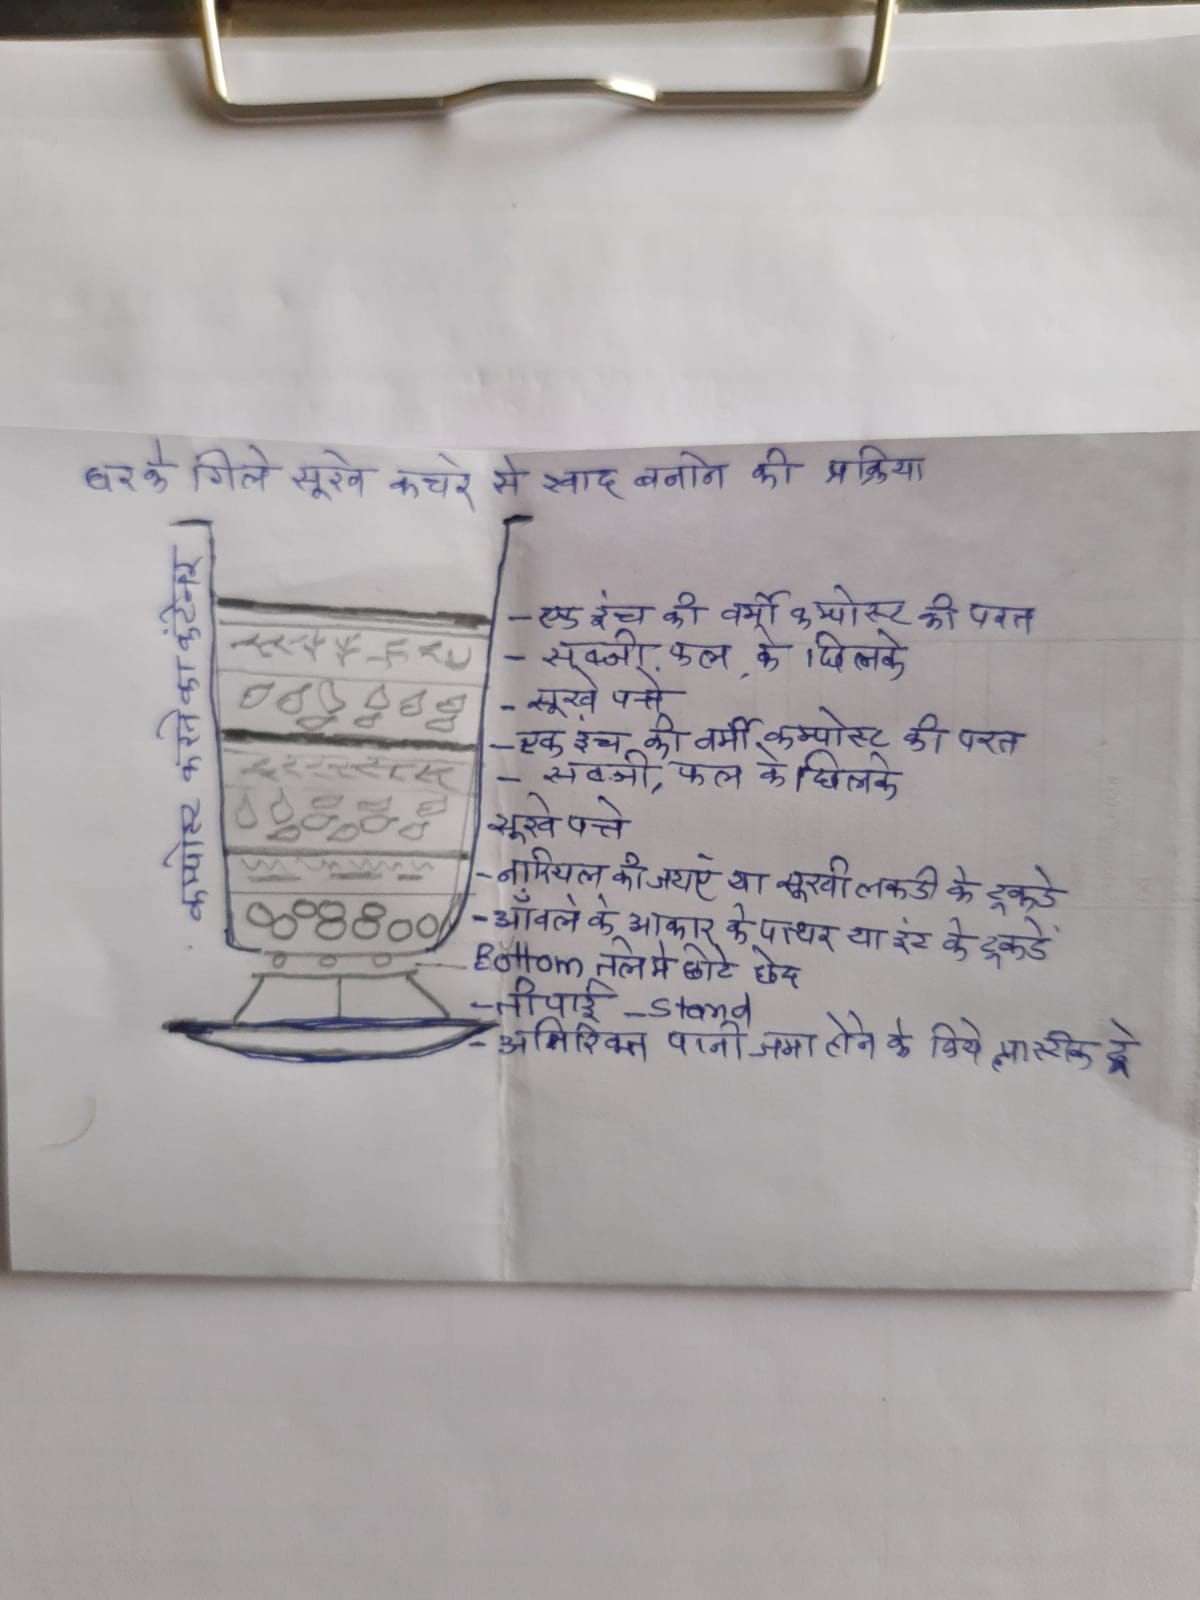 घर के गिले सूखे कचरे से खाद बनाने की प्रक्रिया
कम्पोस्ट करने का कंटेनर
- एक इंच की वर्मी कम्पोस्ट की परत
- सब्जी, फल, के छिलके
- सूखे पत्ते
- एक इंच की वर्मी कम्पोस्ट की परत
- सब्जी, फल के छिलके
सूखे पत्ते
- नारियल की जटाएं या सूखी लकडी के टूकडे
- आँवले के आकार के पत्थर या इंट के टूकडें
Bottom तले मे छोटे छेद
- तीपाई - Stand
- अतिरिक्त पानी जमा होने के लिये प्लास्टीक ट्रे